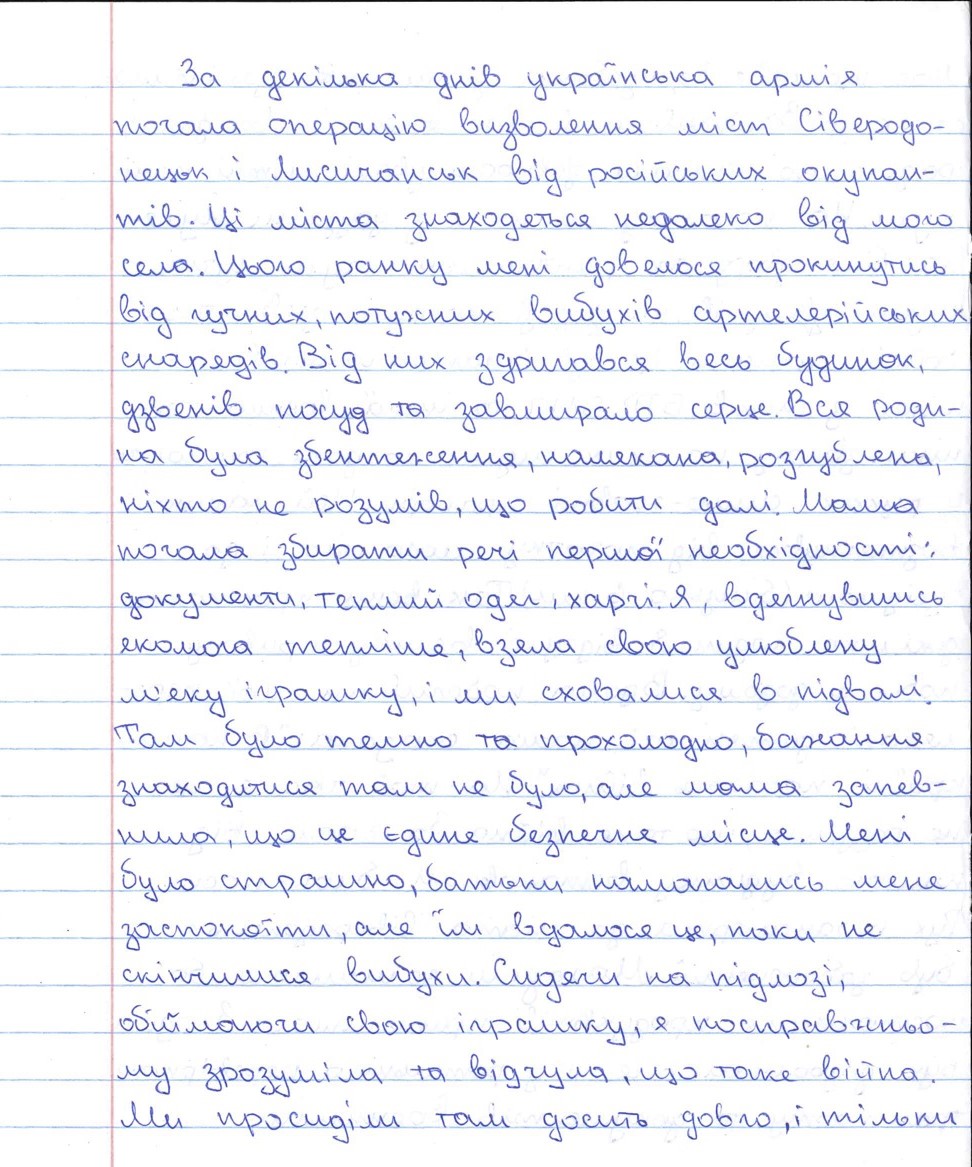 За декілька днів українська армія
почала операцію визволення міст Сіверодо-
нецьк і Лисичанськ від російських окупан-
тів. Ці міста знаходяться недалеко від мого
села. Цього ранку мені довелося прокинутись
від гучних, потужних вибухів артелерійських
снарядів. Від них здригався весь будинок,
дзвенів посуд та завмирало серце. Вся роди-
на була збентеження, налякана, розгублена,
ніхто не розумів, що робити далі. Мама
почала збирати речі першої необхідності:
документи, теплий одяг, харчі. Я, вдягнувшись
якомога тепліше, взяла свою улюблену
м'яку іграшку, і ми сховалися в підвалі.
Там було темно та прохолодно, бажання
знаходитися там не було, але мама запев-
нила, що це єдине безпечне місце. Мені
було страшно, батьки намагались мене
заспокоїти, але їм вдалося це, поки не
скінчилися вибухи. Сидячи на підлозі,
обіймаючи свою іграшку, я посправжньо-
му зрозуміла та відчула, що таке війна.
Ми просиділи там досить довго, і тільки